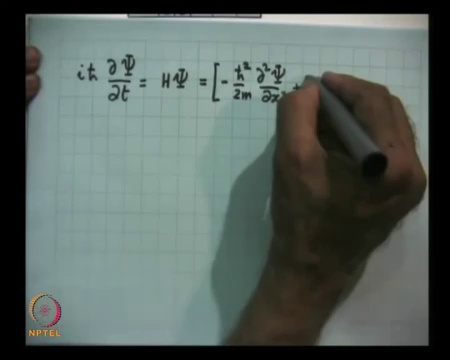 iħ ∂Ψ/∂t = HΨ = [ - ħ²/2m ∂²Ψ/∂x² +
NPTEL